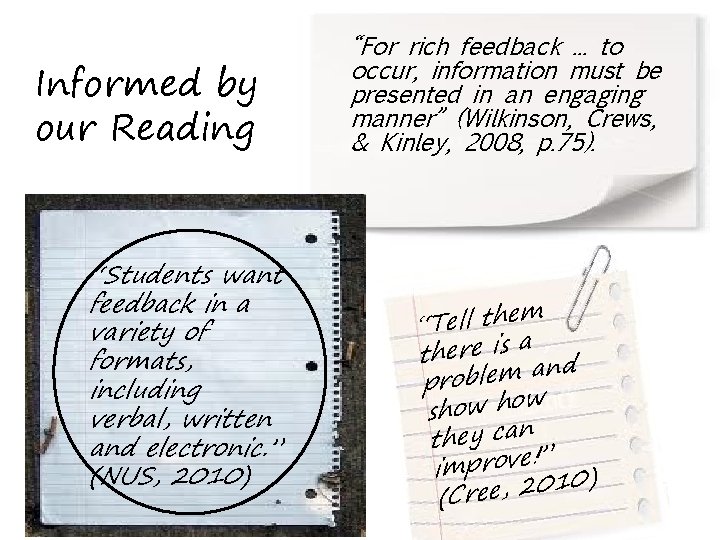 Informed by
our Reading
“For rich feedback ... to
occur, information must be
presented in an engaging
manner” (Wilkinson, Crews,
& Kinley, 2008, p.75).
“Students want
feedback in a
variety of
formats,
including
verbal, written
and electronic.”
(NUS, 2010)
“Tell them
there is a
problem and
show how
they can
improve!”
(Cree, 2010)